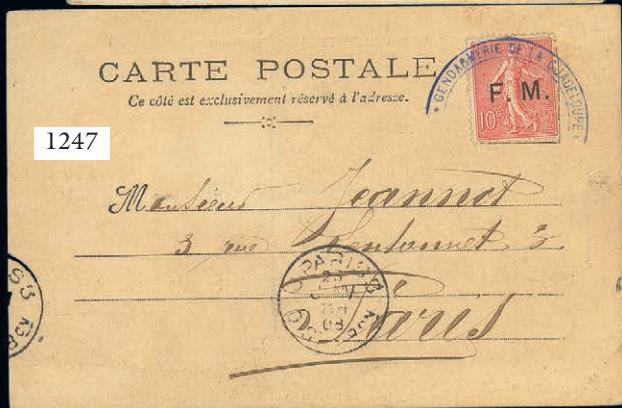 CARTE POSTALE
Ce côté est exclusivement réservé à l'adresse.
* GENDARMERIE DE LA GUADELOUPE *
F. M.
10c
1247
Monsieur Jeannot
3 rue
Paris
PARIS
08